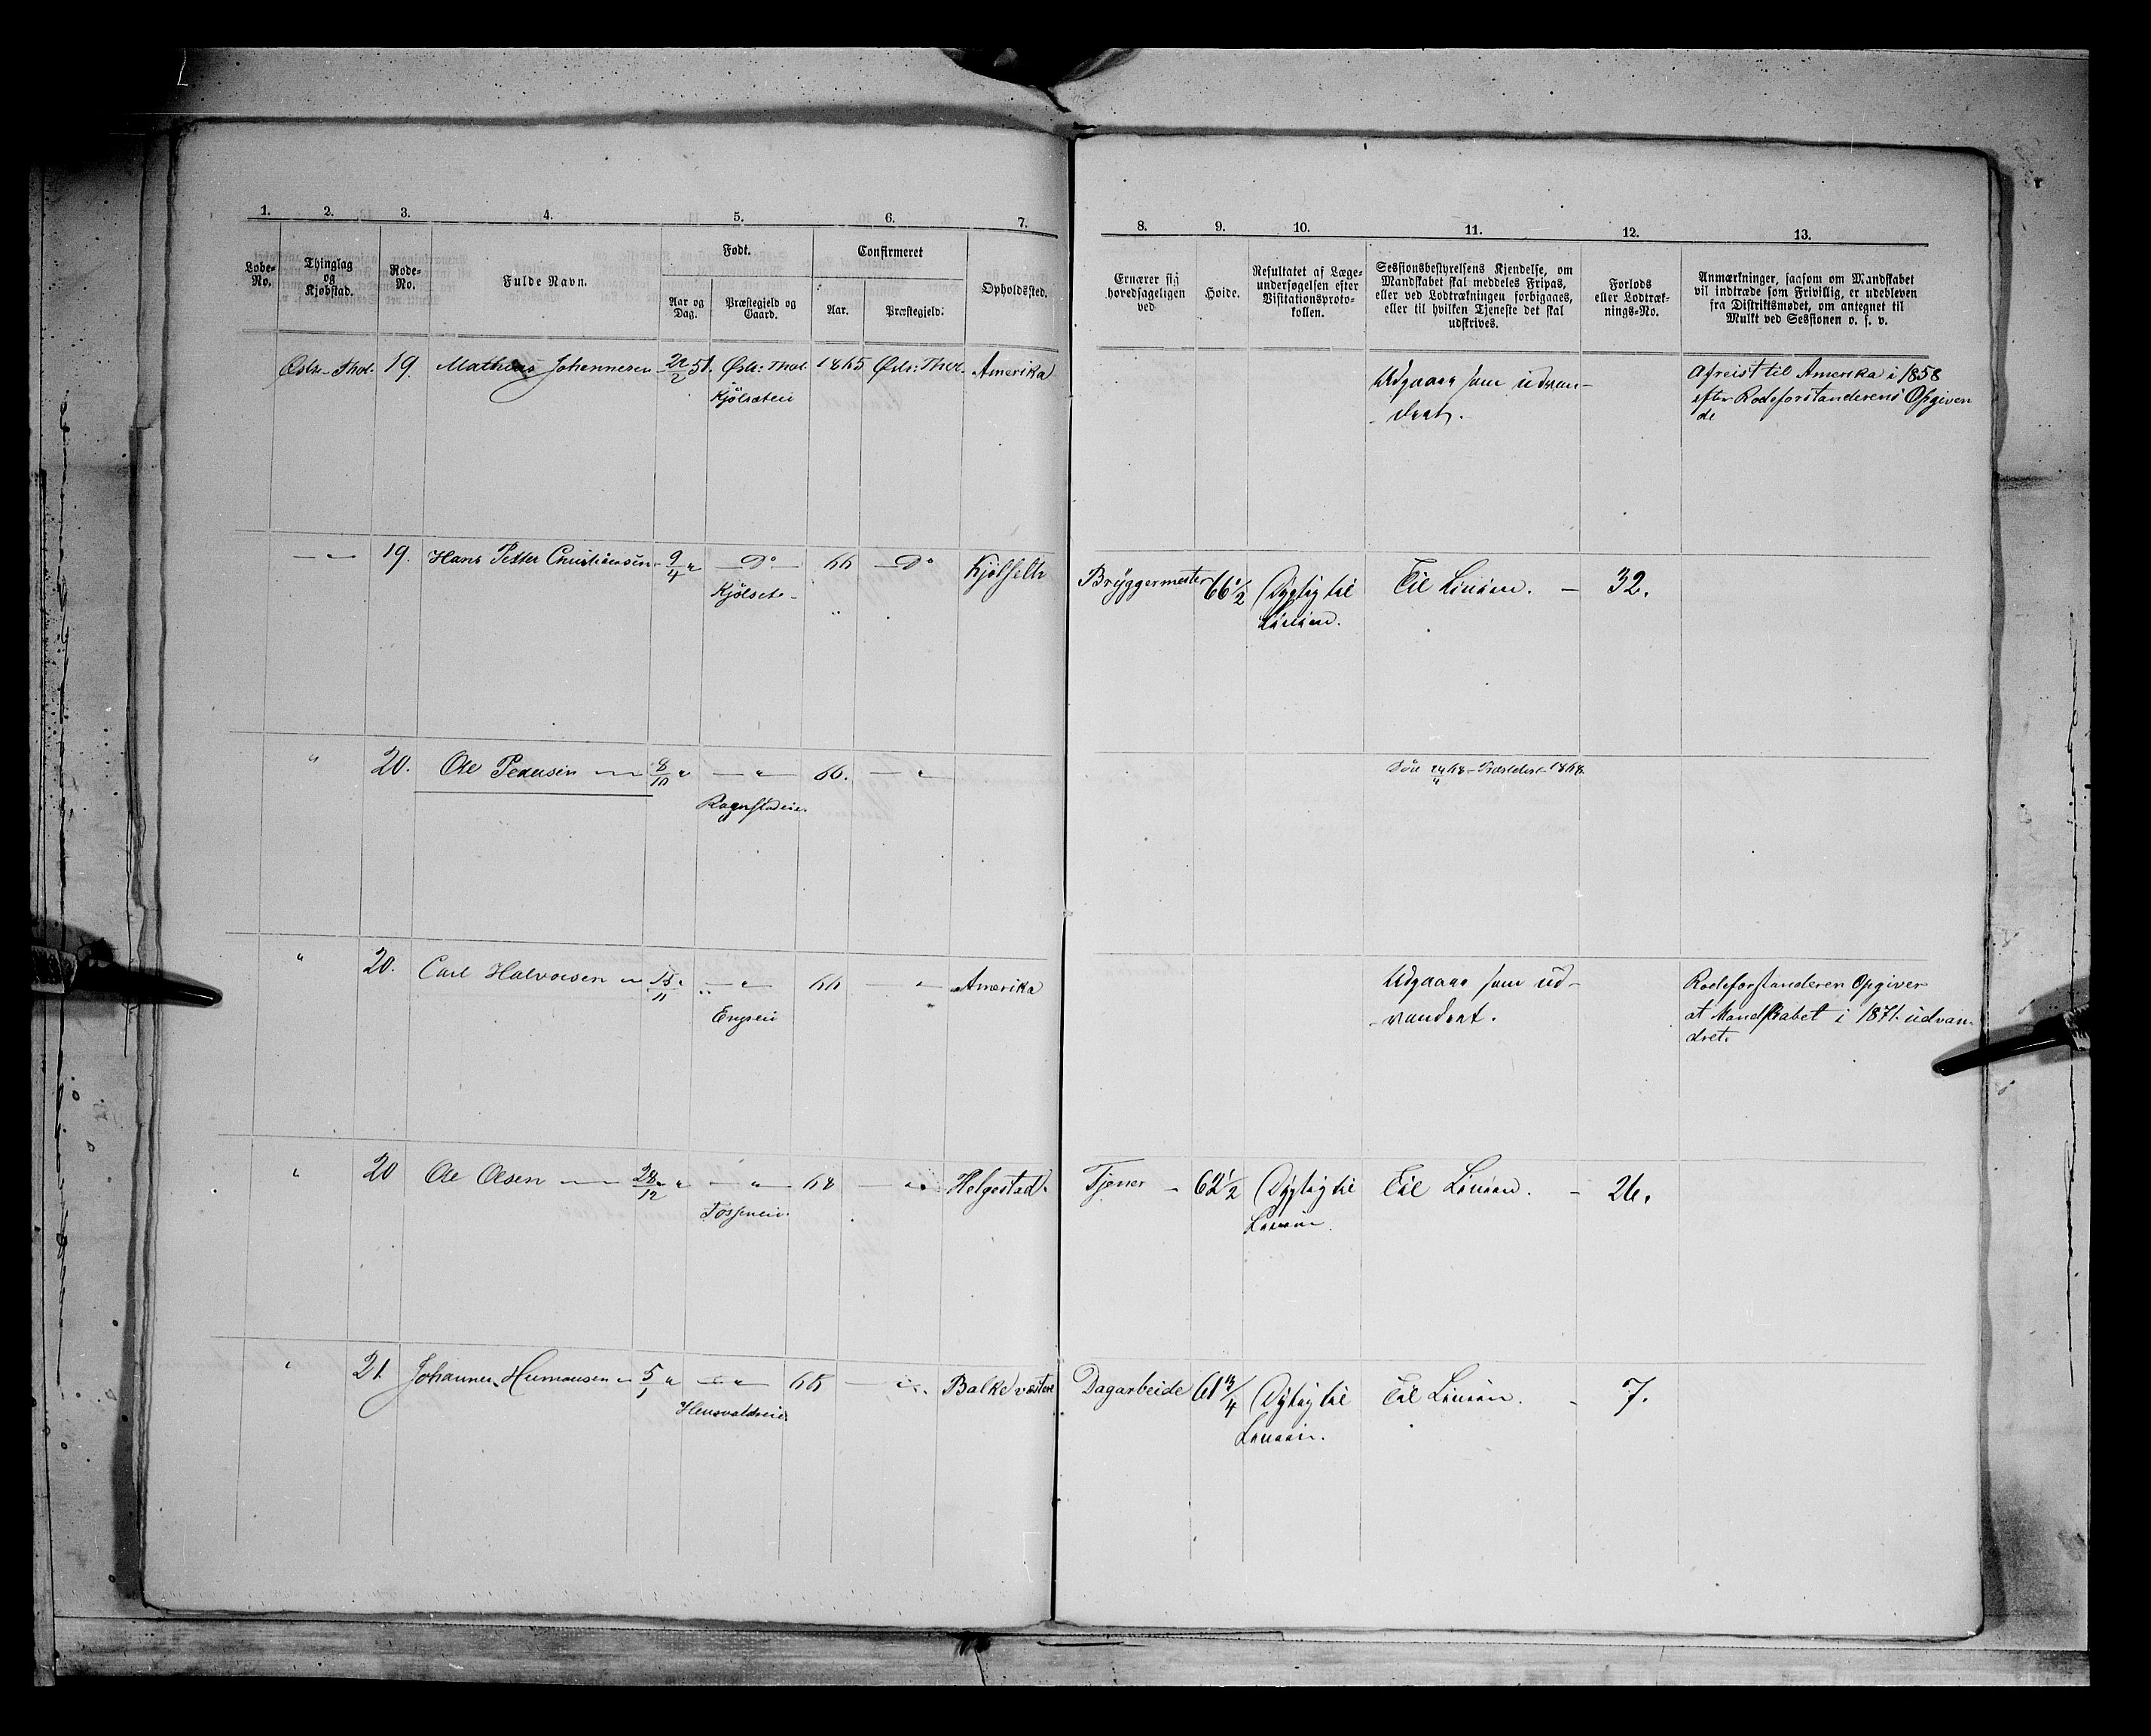 1. 2. 3. 4. 5. 6. 7.
Løbe-No. Thinglag og Kjøbstad. Rode-No. Fulde Navn. Født. Confirmeret Opholdssted.
Aar og Dag. Præstegjeld og Gaard. Aar. Præstegjeld.
8. 9. 10. 11. 12. 13.
Ernærer sig hovedsageligen ved
Høide.
Resultatet af Læge-
undersøgelsen efter
Visitationsproto-
kollen.
Sessionsbestyrelsens Kjendelse, om
Mandskabet skal meddeles Fripas,
eller ved Lodtrækningen forbigaaes,
eller til hvilken Tjeneste det skal
udskrives.
Forlods
eller Lodtræk-
nings-No.
Anmærkninger, saasom om Mandskabet
vil indtræde som Frivillig, er udebleven
fra Distriktsmødet, om antegnet til
Mulkt ved Sessionen o. s. v.
19. Mathias Johannesen 22/2 51. 1865 Amerika
Kjölseteie
Udgaaer som udvan-
dret.
Afreist til Amerika i 1858
efter Rodeforstanderens Opgiven
de
19. Hans Petter Christiansen 9/4 " Do 66 Do Kjølseth
Kjölseth
Bryggermester 66 1/2 Dygtig til Linien. Til Linien. - 32.
" 20. Ole Pedersen 8/10 " " 66. "
Ragnstadeie
" 20. Carl Halvorsen 15/11 " 66 " Amerika
Engseie
Udgaaer som ud-
vandret.
Rodeforstanderen Opgiver
at Mandskabet i 1871 udvan-
dret.
" 20 Ole Olsen 28/12 " " 68 " Helgestad.
Tjener - 62 1/2 Dygtig til Linien. Til Linien. - 26.
" 21. Johannes Hermansen 5/1 " " " Balke vestre
Hensvoldseie
Dagarbeide 61 3/4 Dygtig til Linien. Til Linien. - 7.